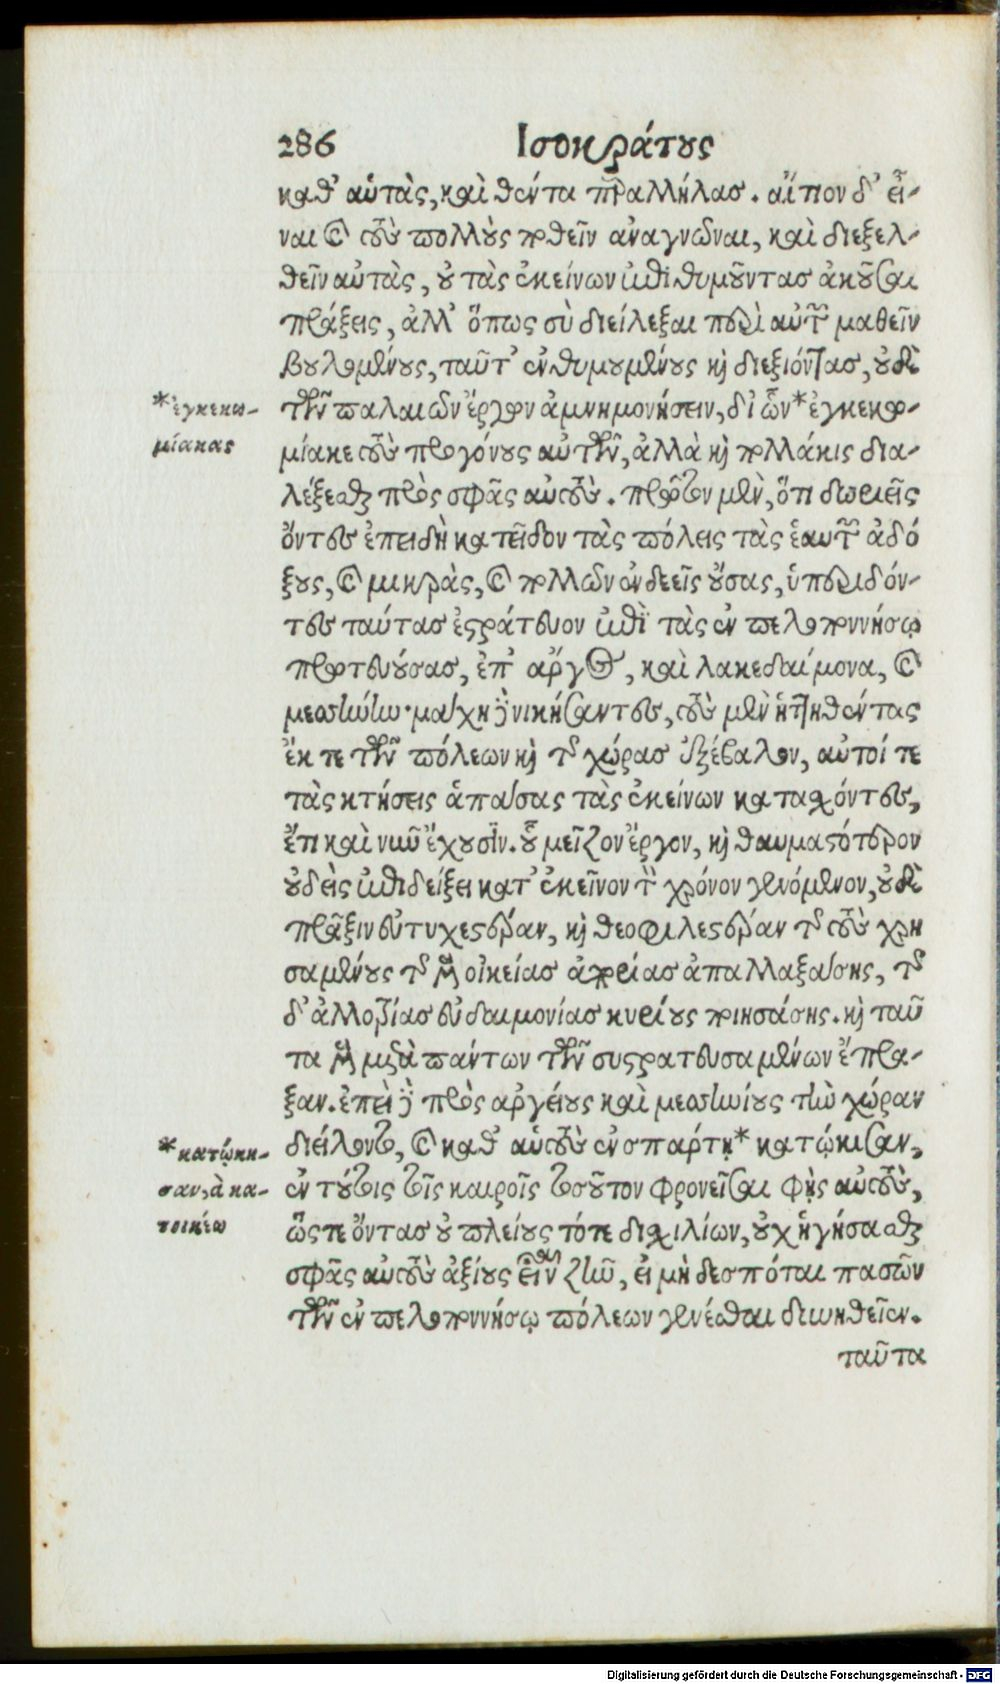 286 Ἰσοκράτους
καθ' αὑτὰς, καὶ θέντα παραλλήλας. αἴτιον δ' εἶ-
ναι καὶ τοὺς πολλοὺς ποθεῖν ἀναγνῶναι, καὶ διεξελ-
θεῖν αὐτὰς, οὐ τὰς ἐκείνων ἐπιθυμοῦντας ἀκοῦσαι
πράξεις, ἀλλ' ὅπως σὺ διείλεξαι περὶ αὐτῶν μαθεῖν
βουλομένους, ταῦτ' ἐνθυμουμένους καὶ διεξιόντας, οὐδὲ
*ἐγκεκω-
μίακας
τῶν παλαιῶν ἔργων ἀμνημονήσειν, δι' ὧν* ἐγκεκω-
μίακε τοὺς προγόνους αὐτῶν, ἀλλὰ καὶ πολλάκις δια-
λέξεσθαι πρὸς σφᾶς αὐτοὺς. πρῶτον μὲν, ὅτι δωριεῖς
ὄντες ἐπειδὴ κατεῖδον τὰς πόλεις τὰς ἑαυτῶν ἀδό
ξους, καὶ μικρὰς, καὶ πολλῶν ἐνδεεῖς οὔσας, ὑπεριδόν-
τες ταύτας ἐστράτευον ἐπὶ τὰς ἐν πελοποννήσῳ
πρωτευούσας, ἐπ' ἄργος, καὶ λακεδαίμονα, καὶ
μεσσήνην· μάχῃ δὲ νικήσαντες, τοὺς μὲν ἡττηθέντας
ἔκ τε τῶν πόλεων καὶ τῆς χώρας ἐξέβαλον, αὐτοί τε
τὰς κτήσεις ἁπάσας τὰς ἐκείνων κατασχόντες,
ἔτι καὶ νῦν ἔχουσιν. οὗ μεῖζον ἔργον, καὶ θαυμαστότερον
οὐδεὶς ἐπιδείξει κατ' ἐκεῖνον τὸν χρόνον γενόμενον, οὐδὲ
πρᾶξιν εὐτυχεστέραν, καὶ θεοφιλεστέραν τῆς τοὺς χρη
σαμένους τῆς μὲν οἰκείας ἀπορίας ἀπαλλαξάσης, τῆς
δ' ἀλλοτρίας εὐδαιμονίας κυρίους ποιησάσης. καὶ ταῦ
τα μὲν μετὰ πάντων τῶν συστρατευσαμένων ἔπρα-
ξαν. ἐπεὶ δὲ πρὸς ἀργείους καὶ μεσσηνίους τὴν χώραν
*κατῴκη-
σαν, ὰ κα-
τοικέω
διείλοντο, καὶ καθ' αὑτοὺς ἐν σπάρτῃ* κατῴκισαν,
ἐν τούτοις τοῖς καιροῖς τοσοῦτον φρονεῖσαι φῂς αὐτοὺς,
ὥστε ὄντας οὐ πλείους τότε δισχιλίων, οὐχ ἡγήσασθαι
σφᾶς αὐτοὺς ἀξίους εἶναι ζῆν, εἰ μὴ δεσπόται πασῶν
τῶν ἐν πελοποννήσῳ πόλεων γενέσθαι δυνηθεῖεν.
ταῦτα
Digitalisierung gefördert durch die Deutsche Forschungsgemeinschaft - DFG